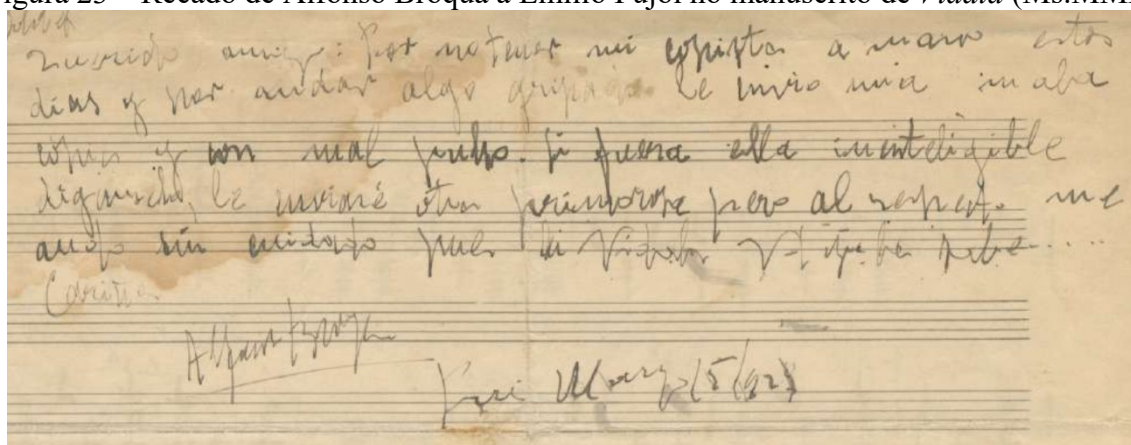 Figura 23 – Recado de Alfonso Broquà a Emilio Pujol no manuscrito de Vidala (Ms.MM
Querido amigo: Por no tener mi copista a mano estos
dias y por andar algo gripado le envio una mala
copia y con mal pulso. Si fuera ella inинteligible
digamelo, le enviaré otra primorosa pero al respecto me
ando sin cuidado pues la Vidala Vd
Cariños
Alfonso Broqua
Marzo 15/92